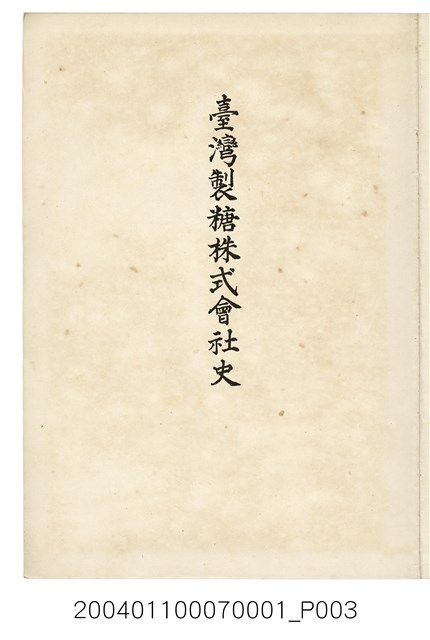 臺灣製糖株式會社史
200401100070001_P003